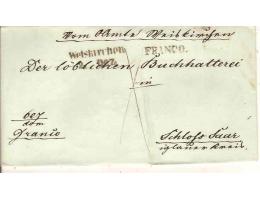 Vom Amte Weiskirchen
Weiskirchen FRANCO.
Der löblichen Buchhalterei
in
Schloss Saar
iglauer Kreis.
dom
Franco